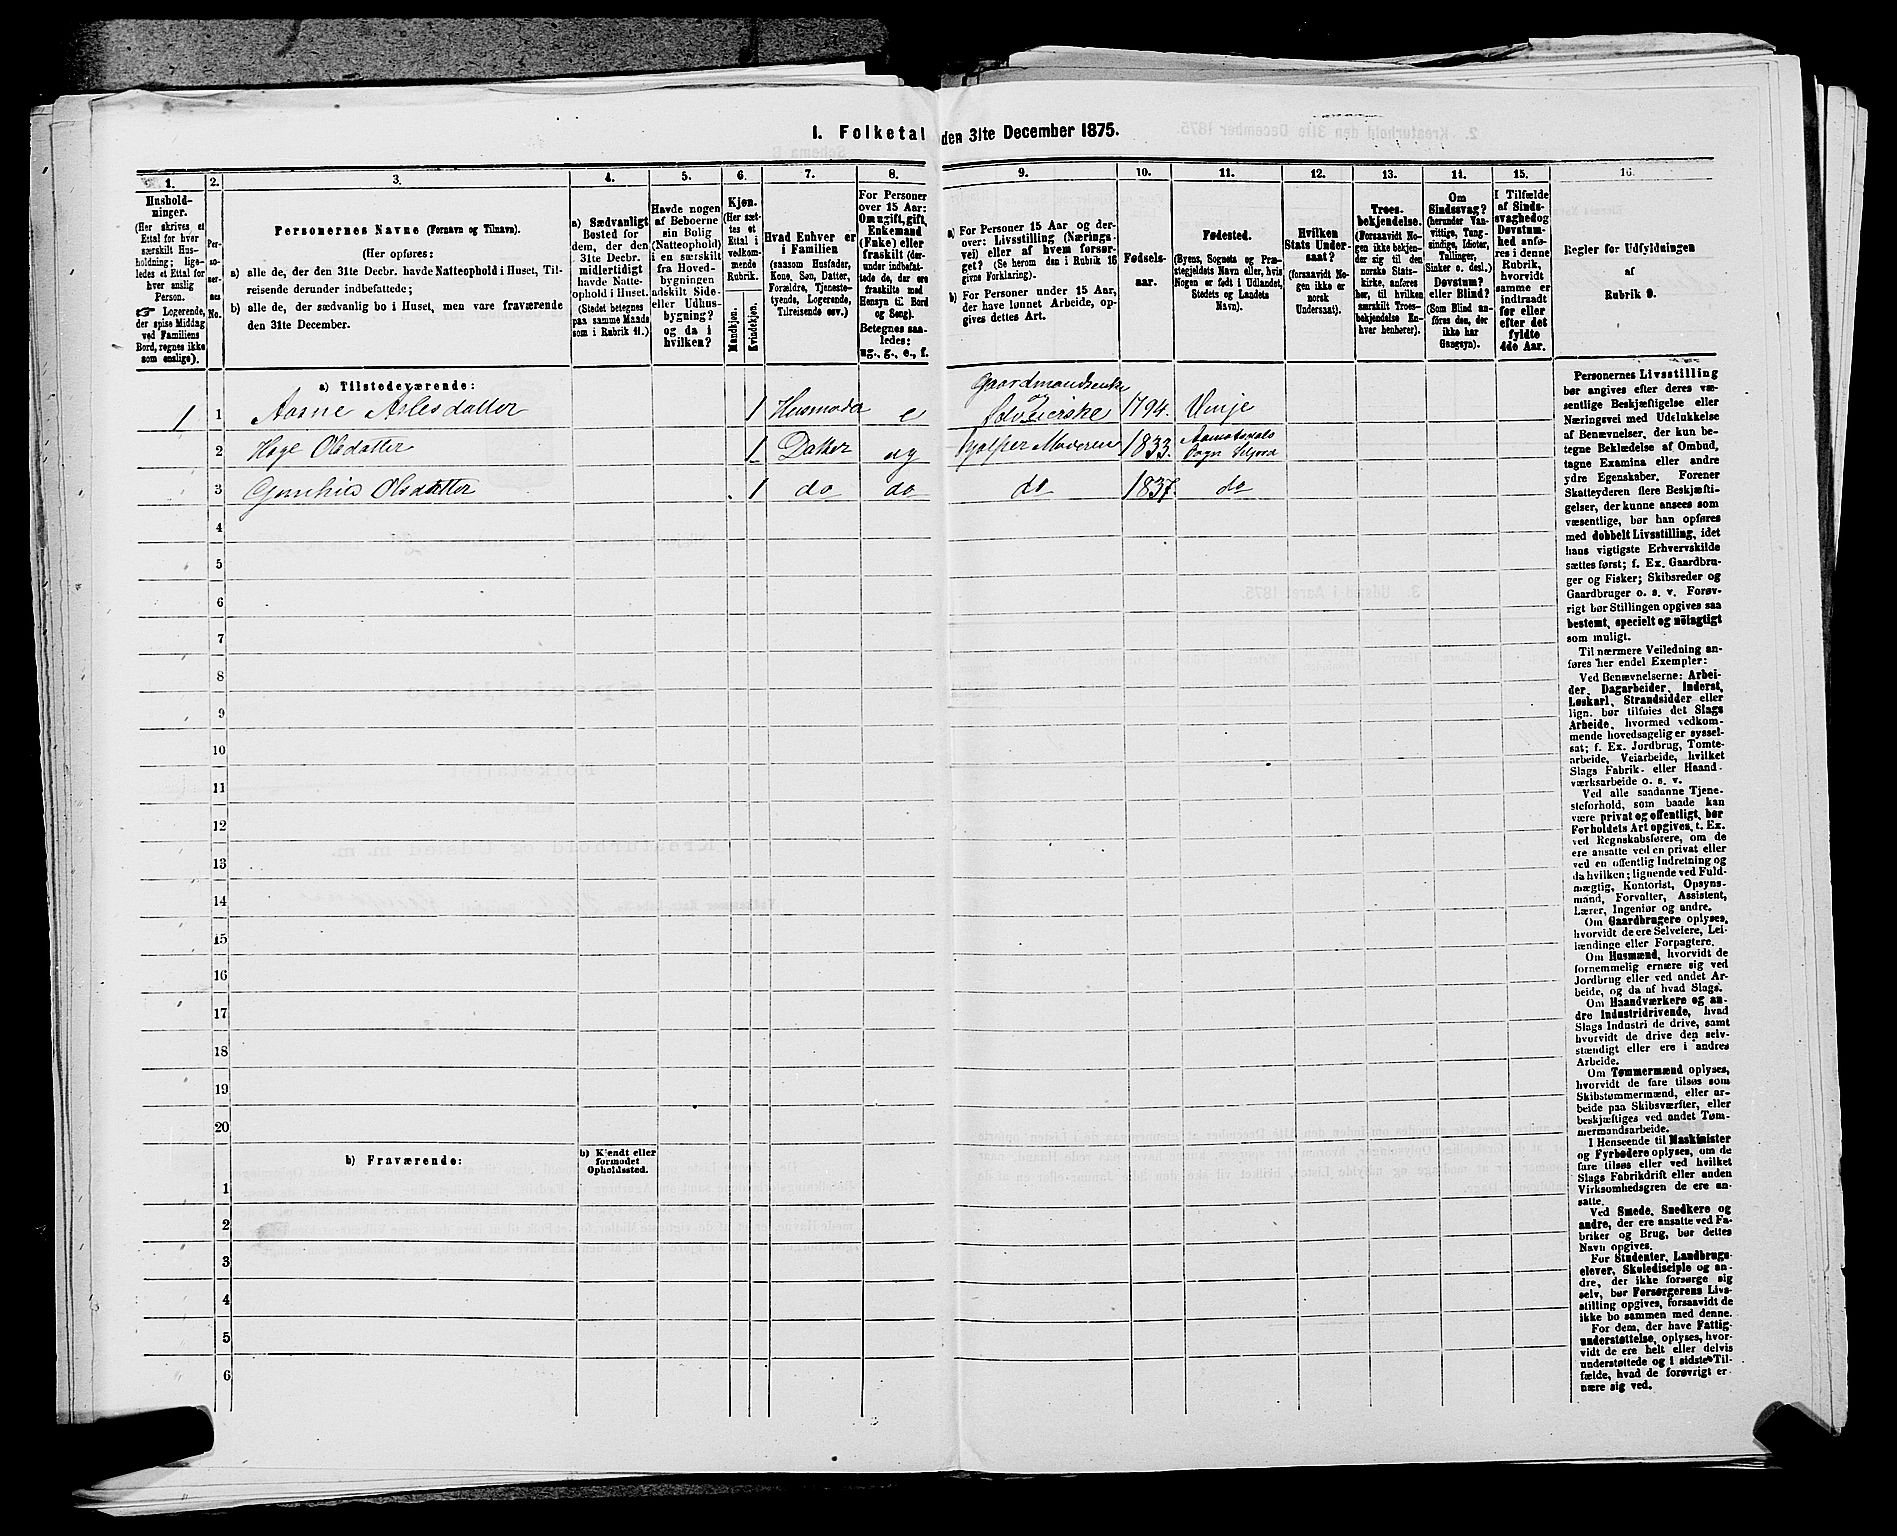 1. Folketal den 31te December 1875.
1.
2.
3.
4.
5.
6.
7.
8.
9.
10.
11.
12.
13.
14.
15.
16.
Hushold-
ninger.
(Her skrives et
Ettal for hver
særskilt Hus-
holdning; lige-
ledes et Ettal for
hver enslig
Person.
☞ Logerende,
der spise Middag
ved Familiens
Bord, regnes ikke
som enslige).
Per-
so-
ner-
nes
No.
Personernes Navne (Fornavn og Tilnavn).
(Her opføres:
a) alle de, der den 31te Decbr. havde Natteophold i Huset, Til-
reisende derunder indbefattede;
b) alle de, der sædvanlig bo i Huset, men vare fraværende
den 31te December.
a) Sædvanligt
Bosted for
dem, der den
31te Decbr.
midlertidigt
havde Natte-
ophold i Huset.
(Stedet betegnes
paa samme Maade
som i Rubrik 11.)
Havde nogen
af Beboerne
sin Bolig
(Natteophold)
i en særskilt
fra Hoved-
bygningen
adskilt Side-
eller Udhus-
bygning?
og da i
hvilken?
Kjøn.
(Her sæt-
tes et
Ettal i
vedkom-
mende
Rubrik.
Mandkjøn.
Kvindekjøn.
Hvad Enhver er
i Familien
(saasom Husfader,
Kone, Søn, Datter,
Forældre, Tjeneste-
tyende, Logerende,
Tilreisende osv.)
For Personer
over 15 Aar:
Om ugift, gift,
Enkemand
(Enke) eller
fraskilt (der-
under indbefat-
tede de, der ere
fraskilte med
Hensyn til Bord
og Seng).
Betegnes saa-
ledes:
ug., g., e., f.
a) For Personer 15 Aar og der-
over: Livsstilling (Nærings-
vei) eller af hvem forsør-
get? (Se herom den i Rubrik 16
givne Forklaring).
b) For Personer under 15 Aar,
der have lønnet Arbeide, op-
gives dettes Art.
Fødsels-
aar.
Fødested.
(Byens, Sognets og Præ-
stegjeldets Navn eller, hvis
Nogen er født i Udlandet,
Stedets og Landets
Navn).
Hvilken
Stats Under-
saat?
(forsaavidt No-
gen ikke er
norsk
Undersaat).
Troes-
bekjendelse.
(Forsaavidt No-
gen ikke bekjen-
der sig til den
norske Stats-
kirke, anføres
her, til hvilken
særskilt Troes-
bekjendelse En-
hver henhører).
Om
Sindssvag?
(herunder Van-
vittige, Tung-
sindige, Idioter,
Sinker o. desl.)
Døvstum?
eller Blind?
(Som Blind an-
føres den, der
ikke har
Gangsyn).
I Tilfælde
af Sinds-
svaghed og
Døvstum-
hed anfø-
res i denne
Rubrik,
hvorvidt
samme er
indtraadt
før eller
efter det
fyldte
4de Aar.
Regler for Udfyldningen
af
Rubrik 9.
a) Tilstedeværende:
1 1 Aasne Aslesdatter 1 Husmoder e Gaardmandsenke og Selveierske 1794. Vinje
2 Hæge Olsdatter 1 Datter ug hjelper Moderen 1833. Aamotsdals Sogn Siljord
3 Gunhild Olsdatter 1 do do do 1837. do
4
5
6
7
8
9
10
11
12
13
14
15
16
17
18
19
20
b) Fraværende:
b) Kjendt eller
formodet
Opholdssted.
1
2
3
4
5
6
Personernes Livsstilling
bør angives efter deres væ-
sentlige Beskjæftigelse eller
Næringsvei med Udelukkelse
af Benævnelser, der kun be-
tegne Beklædelse af Ombud,
tagne Examina eller andre
ydre Egenskaber. Forener
Skatteyderen flere Beskjæfti-
gelser, der kunne ansees som
væsentlige, bør han opføres
med dobbelt Livsstilling, idet
hans vigtigste Erhvervskilde
sættes først; f. Ex. Gaardbru-
ger og Fisker; Skibsreder og
Gaardbruger o. s. v. Forøv-
rigt bør Stillingen opgives saa
bestemt, specielt og nöiagtigt
som muligt.
Til nærmere Veiledning an-
føres her endel Exempler:
Ved Benævnelserne: Arbei-
der, Dagarbeider, Inderst,
Løskarl, Strandsidder eller
lign. bør tilføies det Slags
Arbeide, hvormed vedkom-
mende hovedsagelig er syssel-
sat; f. Ex. Jordbrug, Tomte-
arbeide, Veiarbeide, hvilket
Slags Fabrik- eller Haand-
værksarbeide o. s. v.
Ved alle saadanne Tjene-
steforhold, som baade kan
være privat og offentligt, bør
Forholdets Art opgives, t. Ex.
ved Regnskabsførere, om de
ere ansatte ved en privat eller
ved en offentlig Indretning og
da hvilken; lignende ved Fuld-
mægtig, Kontorist, Opsyns-
mand, Forvalter, Assistent,
Lærer, Ingeniør og andre.
Om Gaardbrugere oplyses,
hvorvidt de ere Selveiere, Lei-
lændinge eller Forpagtere.
Om Husmænd, hvorvidt de
fornemmelig ernære sig ved
Jordbrug eller ved andet Ar-
beide, og da af hvad Slags.
Om Haandværkere og an-
dre Industridrivende, hvad
Slags Industri de drive, samt
hvorvidt de drive den selv-
stændigt eller ere i andres
Arbeide.
Om Tømmermænd oplyses,
hvorvidt de fare tilsøs som
Skibstømmermænd, eller ar-
beide paa Skibsværfter, eller
beskjæftiges ved andet Tøm-
mermandsarbeide.
I Henseende til Maskinister
og Fyrbødere oplyses, om de
fare tilsøs eller ved hvilket
Slags Fabrikdrift eller anden
Virksomhedsgren de ere an-
satte.
Ved Smede, Snedkere og
andre, der ere ansatte ved Fa-
briker og Brug, bør dettes
Navn opgives.
For Studenter, Landbrugs-
elever, Skoledisciple og an-
dre, der ikke forsørge sig
selv, bør Forsørgerens Livs-
stilling opgives, forsaavidt de
ikke bo sammen med denne.
For dem, der have Fattig-
understøttelse, oplyses, hvor-
vidt de ere helt eller delvis
understøttede og i sidste Til-
fælde, hvad de forøvrigt er-
nære sig ved.